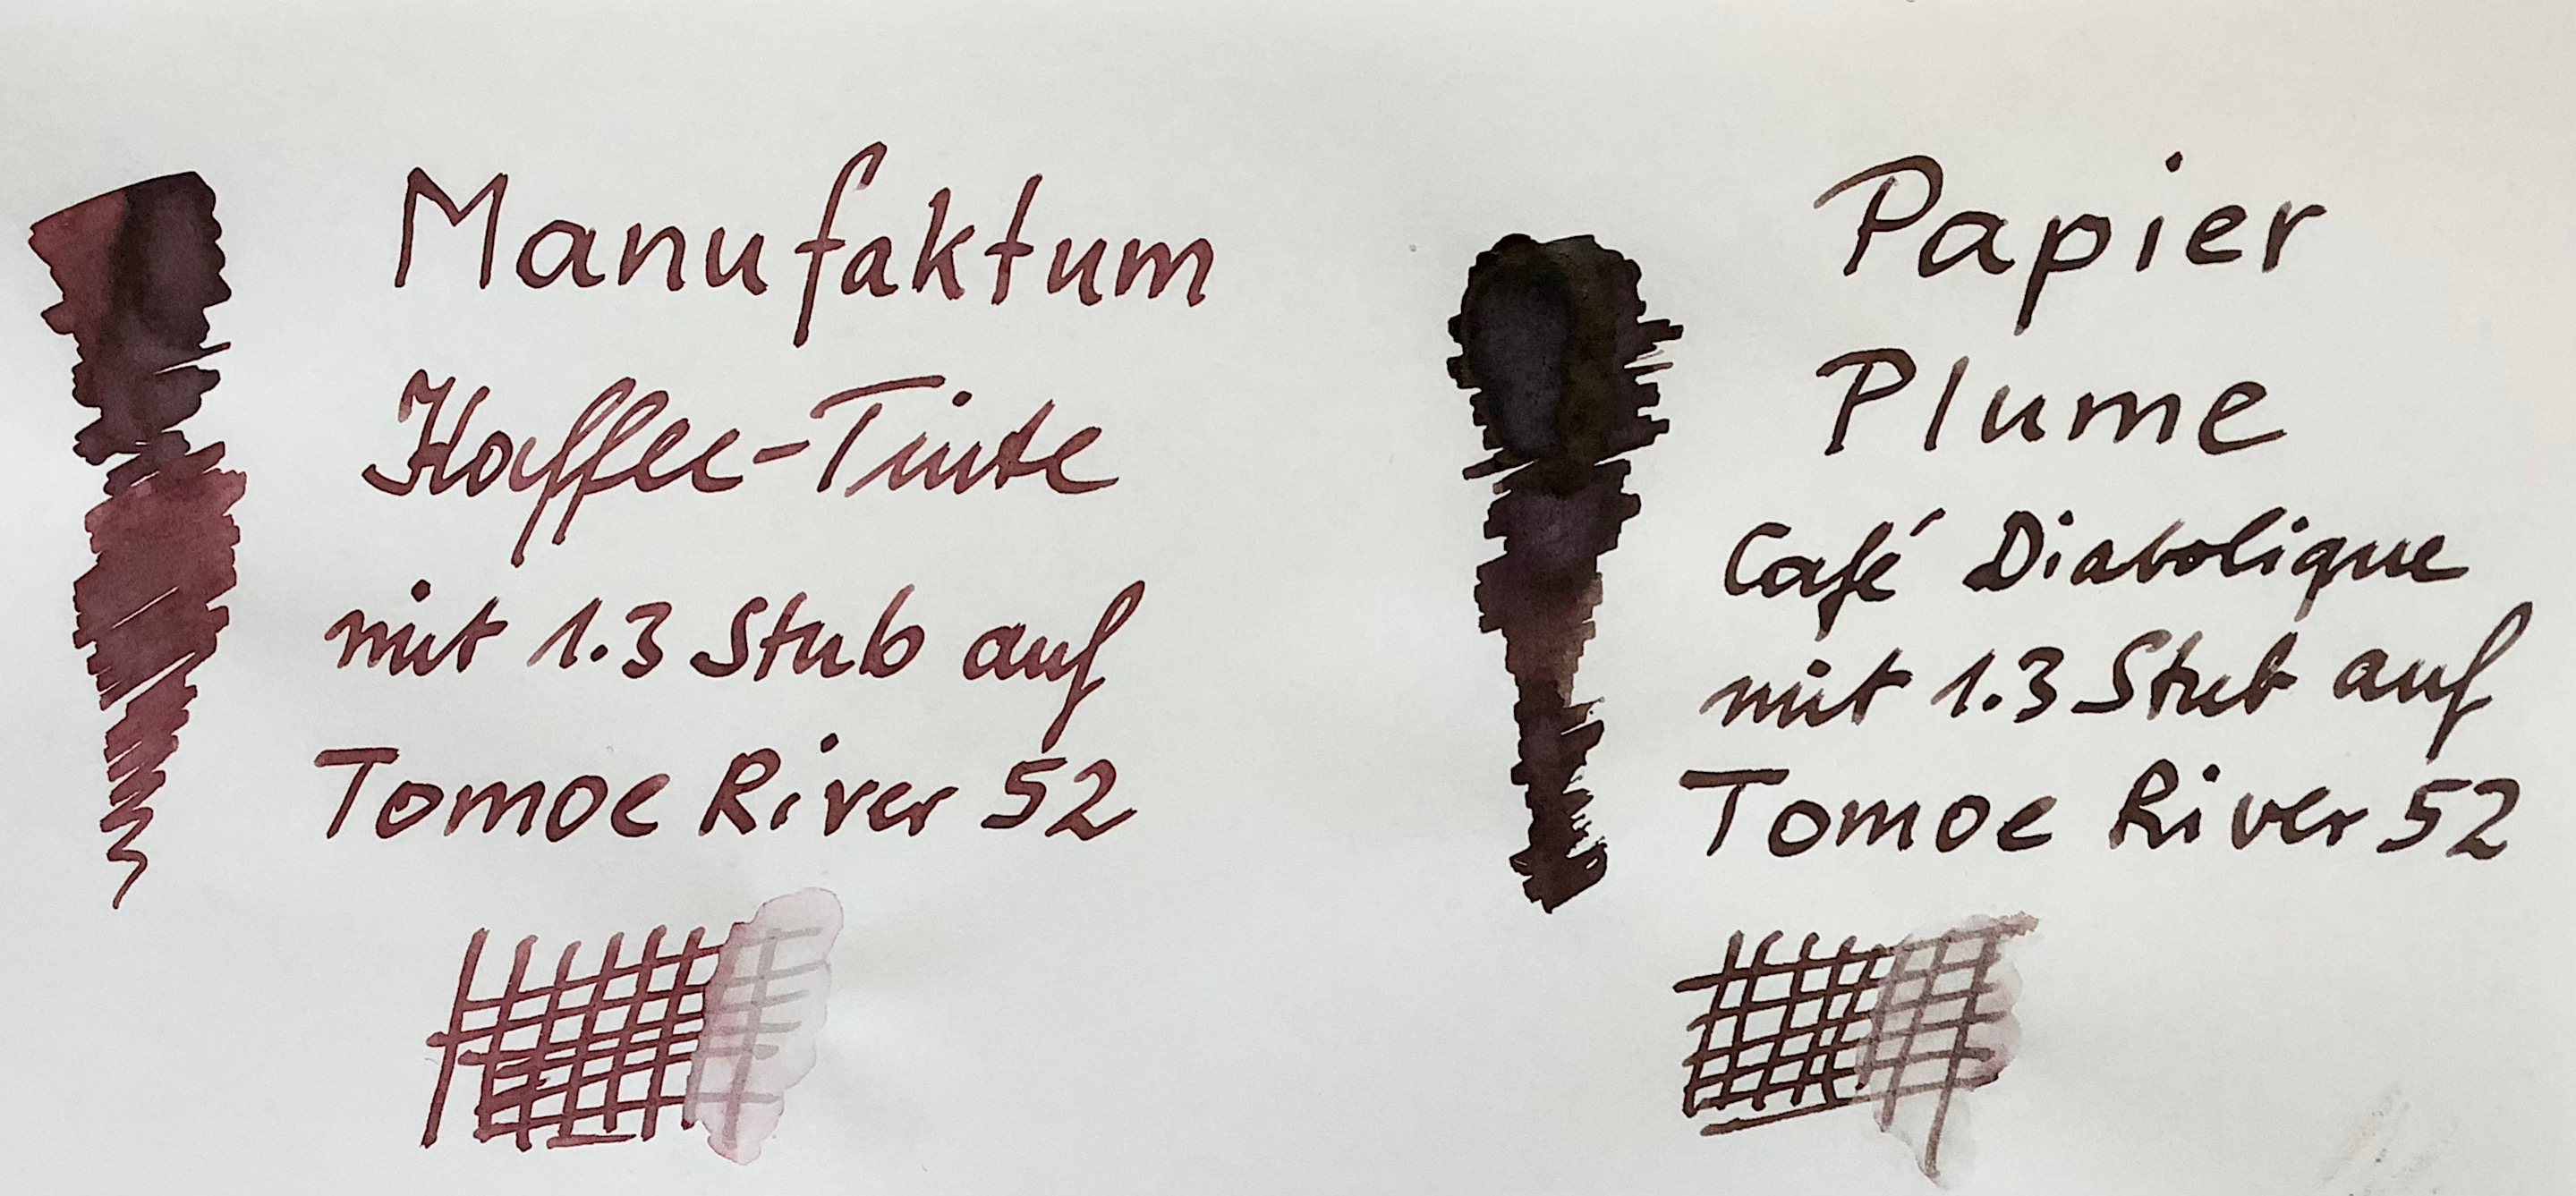 Manufaktum
Kaffee-Tinte
mit 1.3 Stub auf
Tomoe River 52
Papier
Plume
Café Diabolique
mit 1.3 Stub auf
Tomoe River 52